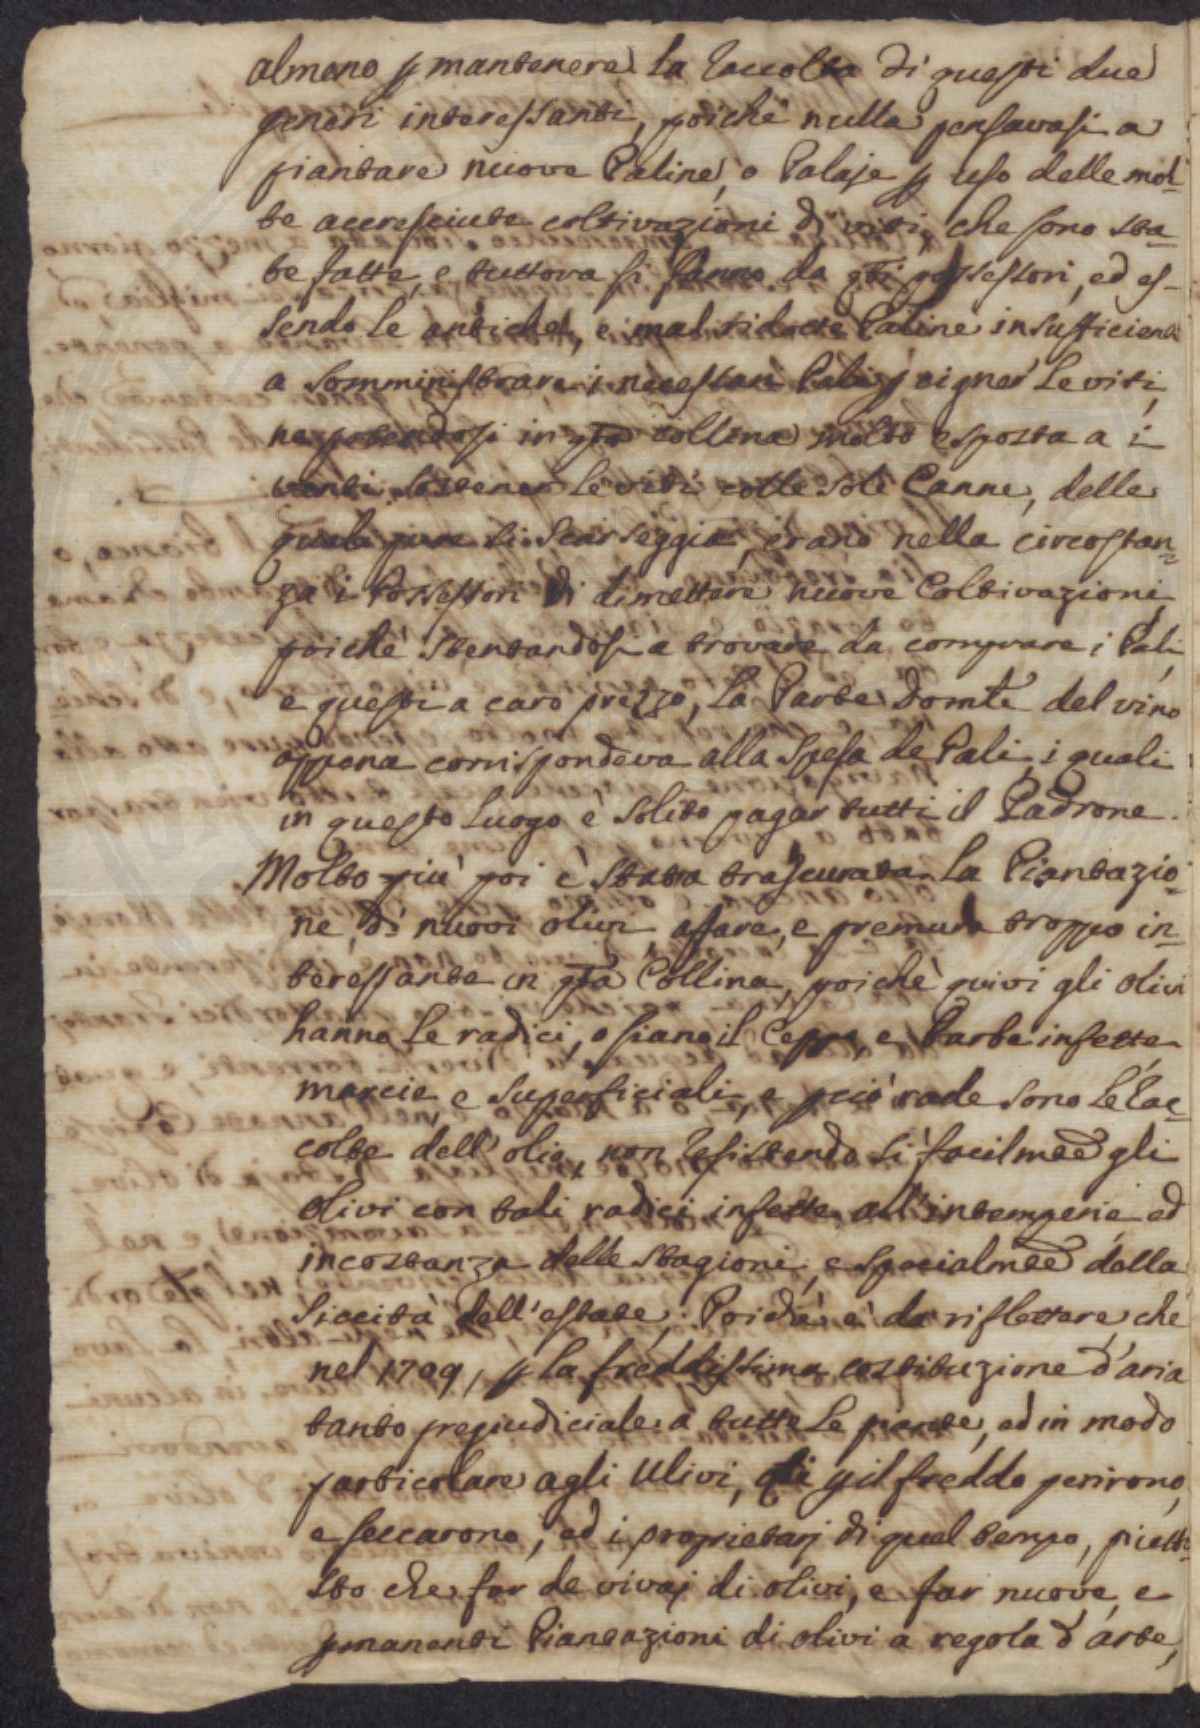 almeno p mantenere la raccolta di questi due
generi interessanti, poichè nulla pensavasi a
piantare nuove Paline, o Palaje p uso delle mol-
te accresciute coltivazioni di viti, che sono sta-
te fatte, e tuttora si fanno da qti possessori, ed es-
sendo le antiche, e mal ridotte Paline insufficienti
a somministrare i necessari Pali p rigner le viti,
ne potendosi in qta collina molto esposta a i
venti sostener le viti colle sole Canne, delle
quali pure si scarseggia, erano nella circostan-
za i Possessori di dimettere nuove Coltivazioni,
poichè stentandosi a trovare da comprare i Pali,
e questi a caro prezzo, la Parte Domle del vino
appena corrispondeva alla spesa de Pali, i quali
in questo luogo è solito pagar tutti il Padrone.
Molto più poi è stata trascurata la Piantazio-
ne di nuovi olivi, affare, e premura troppo in-
teressante in qta Collina, poichè quivi gli olivi
hanno le radici, o siano il Ceppo, e Barbe infette
marcie, e superficiali, e pciò rade sono le rac-
colte dell'olio, non resistendo sì facilmee gli
olivi con tali radici infette all'intemperie, ed
incostanza delle stagioni, e specialmee dalla
siccità dell'estate; Poichè è da riflettere, che
nel 1709, p la freddissima costituzione d'aria
tanto pregiudiciale a tutte le piante, ed in modo
particolare agli Ulivi, qli p il freddo perirono,
e seccarono, ed i proprietarj di quel tempo, piutto-
sto che far de vivaj di olivi, e far nuove, e
pmanenti Piantazioni di olivi a regola d'arte,